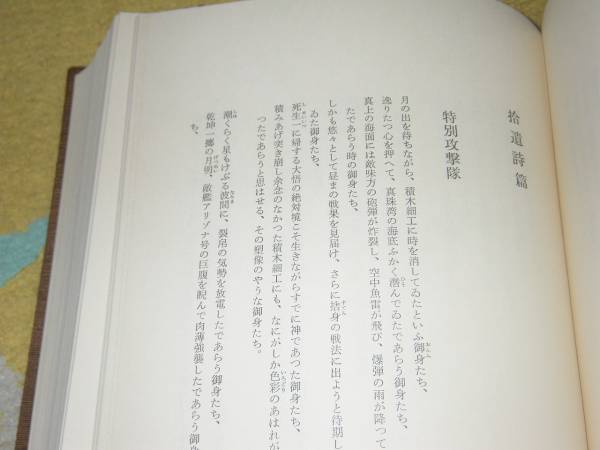 拾遺詩篇
特別攻撃隊
月の出を待ちながら、積木細工に時を消してゐたといふ御身たち、
おんみ
逸りたつ心を押へて、真珠湾の海底ふかく潜んでゐたであらう御身たち、
真上の海面には敵味方の砲弾が炸裂し、空中魚雷が飛び、爆弾の雨が降つて
たであらう時の御身たち、
しかも悠々として昼まの戦果を見届け、さらに捨身の戦法に出ようと待期し
すてみ
ゐた御身たち、
死生一に帰する大悟の絶対境こそ生きながらすでに神であつた御身たち、
積みあげ突き崩し余念のなかつた積木細工にも、なにがしか色彩のあはれが
いろどり
つたであらうと思はせる、その塑像のやうな御身たち。
潮くらく星もけぶる波間に、裂帛の気勢を放電したであらう御身たち、
なみま
乾坤一擲の月明、敵艦アリゾナ号の巨腹を睨んで肉薄強襲したであらう御身
げつめい
ち、